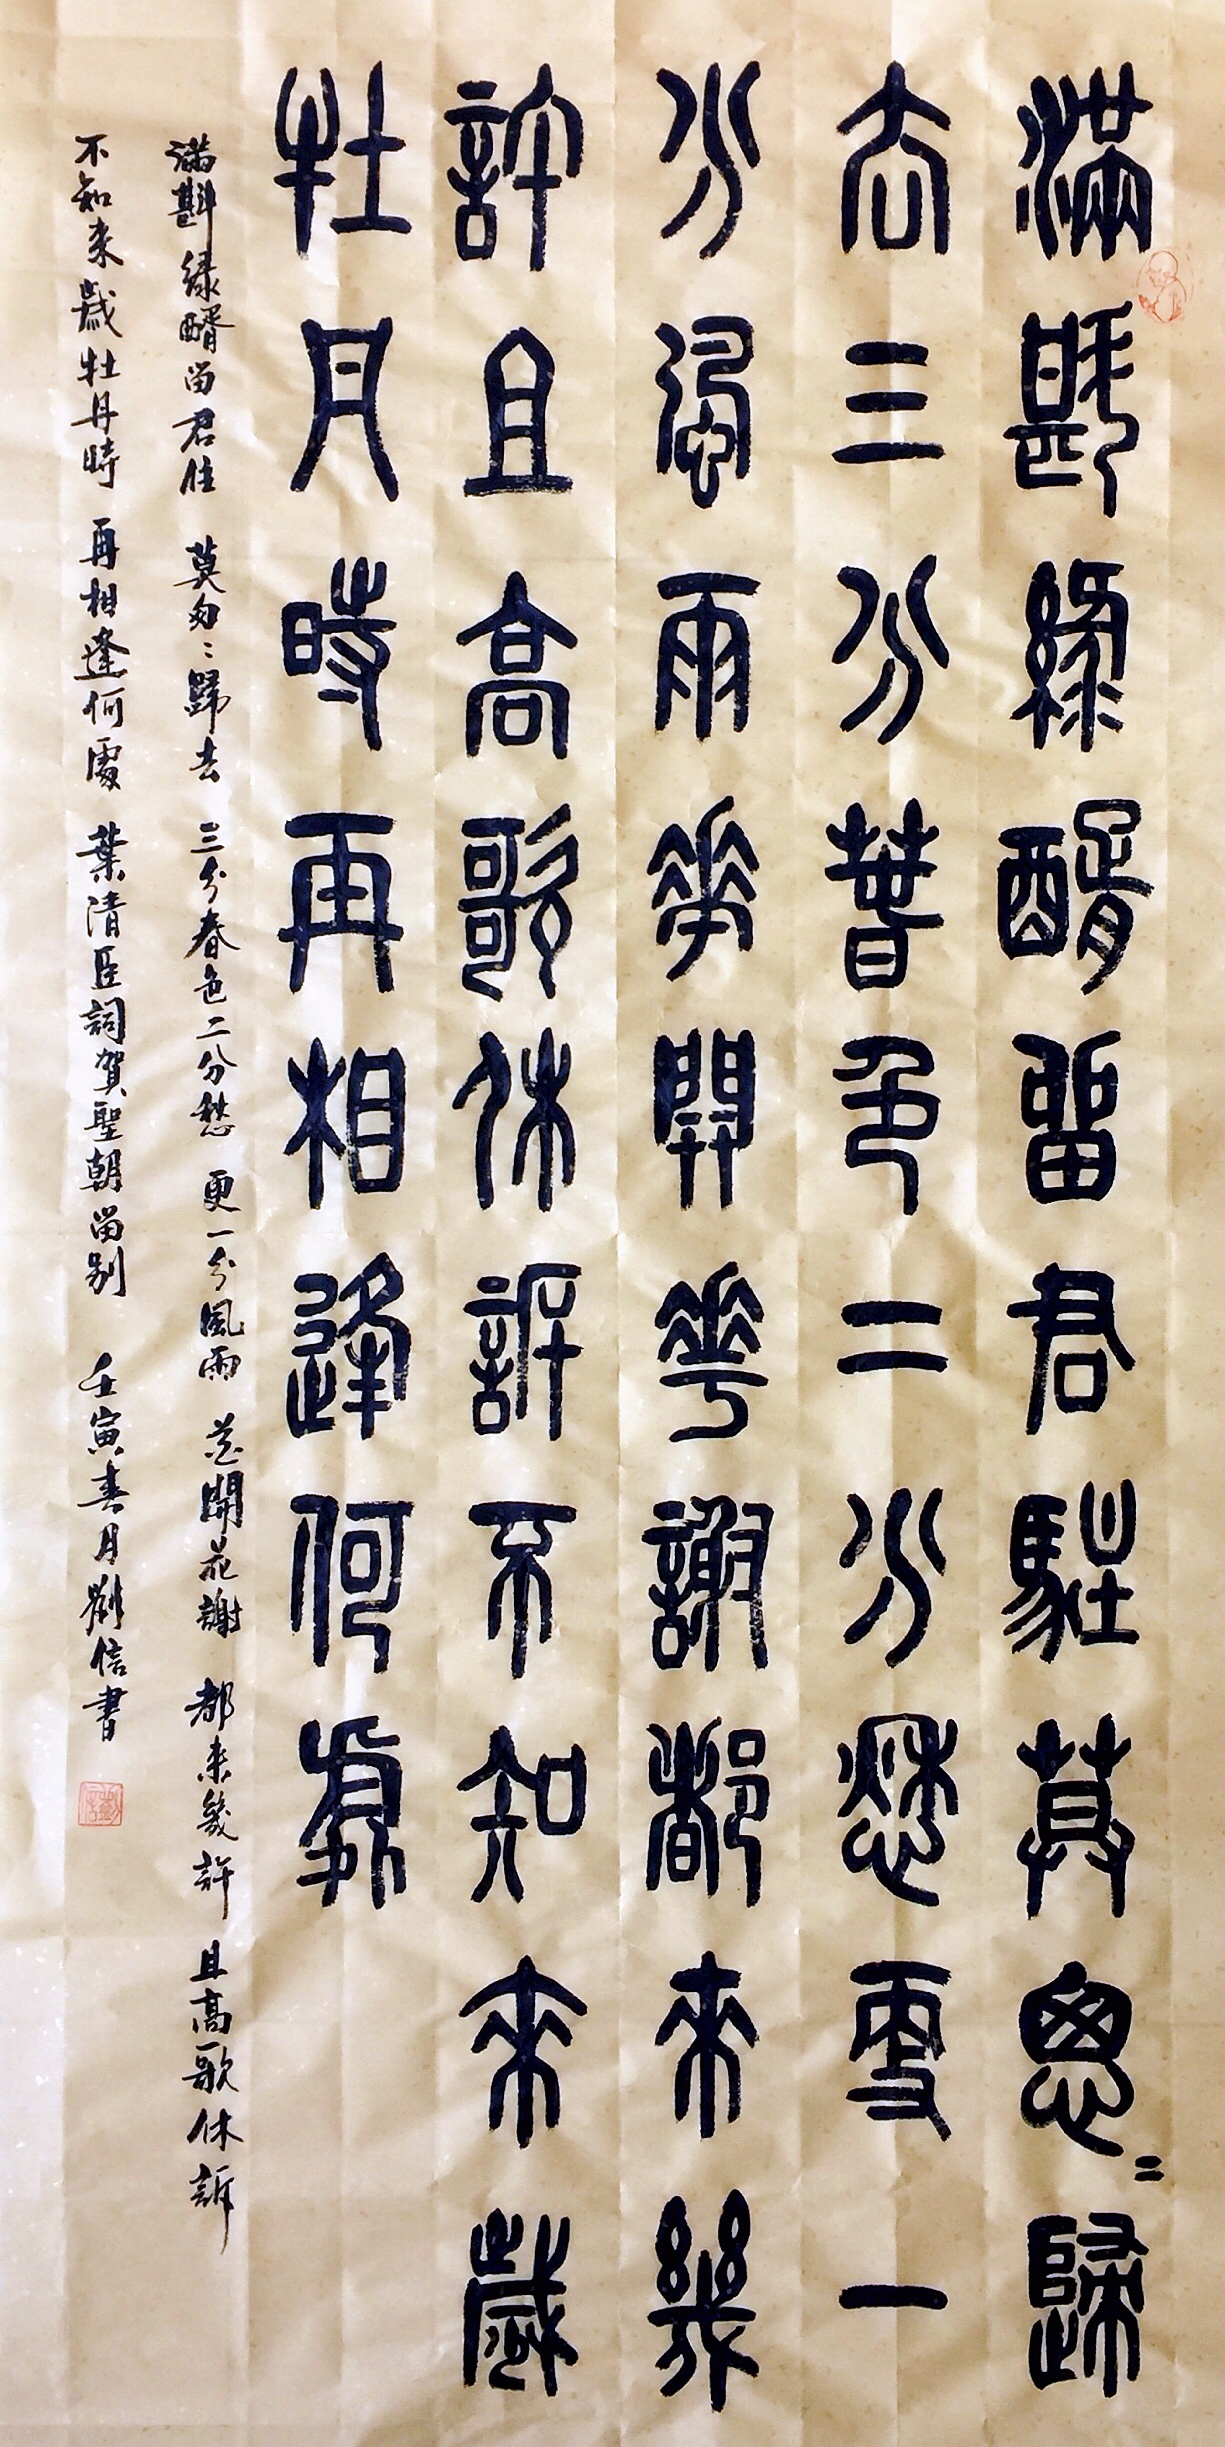 滿斟綠醑留君駐莫悤〻歸
去三分春色二分愁更一
分風雨華開華謝都來幾
許且高歌休訴不知來歲
牡丹時再相逢何處
滿斟綠醑留君住 莫匆〻歸去 三分春色二分愁 更一分風雨 花開花謝 都來幾許 且高歌休訴
不知來歲牡丹時 再相逢何處 葉清臣詞賀聖朝留別 壬寅春月劉信書